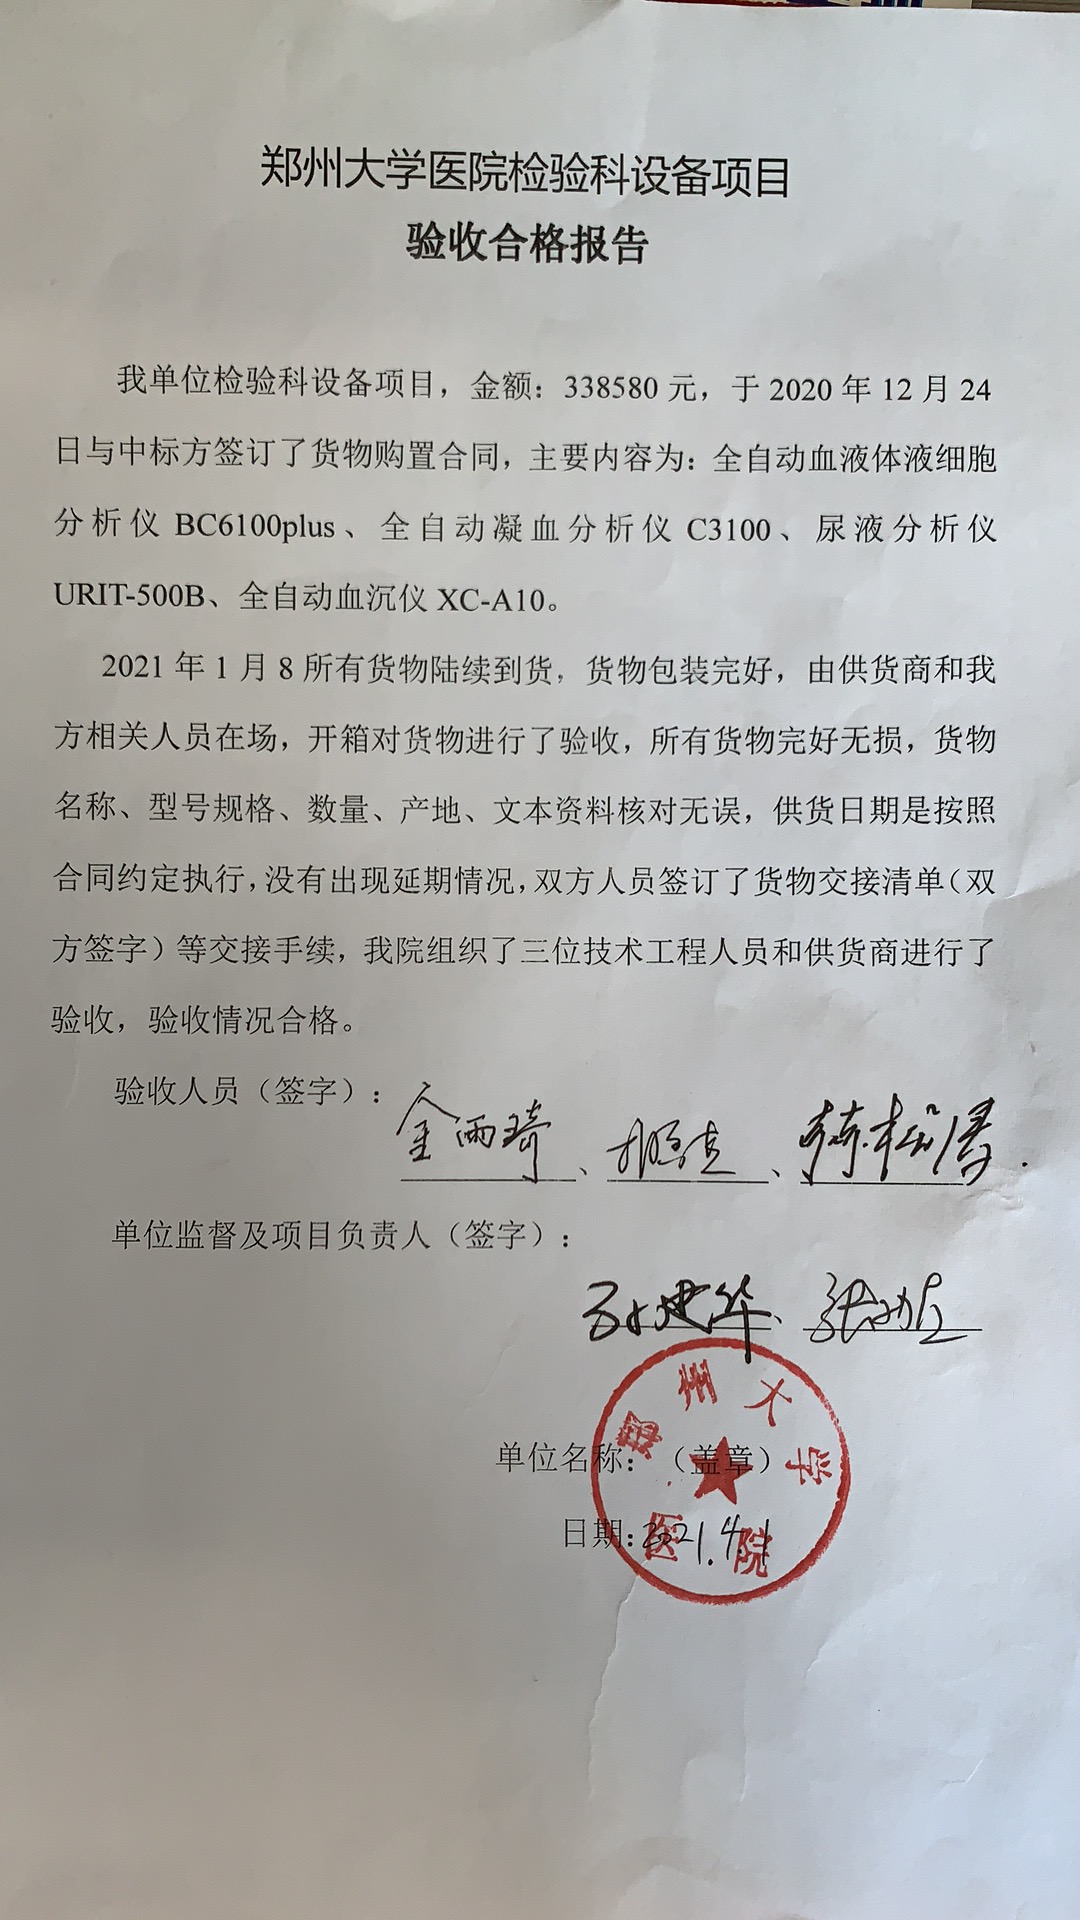 郑州大学医院检验科设备项目
验收合格报告
我单位检验科设备项目，金额：338580 元，于 2020 年 12 月 24
日与中标方签订了货物购置合同，主要内容为：全自动血液体液细胞
分析仪 BC6100plus、全自动凝血分析仪 C3100、尿液分析仪
URIT-500B、全自动血沉仪 XC-A10。
2021 年 1 月 8 所有货物陆续到货，货物包装完好，由供货商和我
方相关人员在场，开箱对货物进行了验收，所有货物完好无损，货物
名称、型号规格、数量、产地、文本资料核对无误，供货日期是按照
合同约定执行，没有出现延期情况，双方人员签订了货物交接清单（双
方签字）等交接手续，我院组织了三位技术工程人员和供货商进行了
验收，验收情况合格。
验收人员（签字）：
金雨琦、
单位监督及项目负责人（签字）：
孙建华、
郑州大学医院
单位名称：（盖章）
日期：2021.4.1